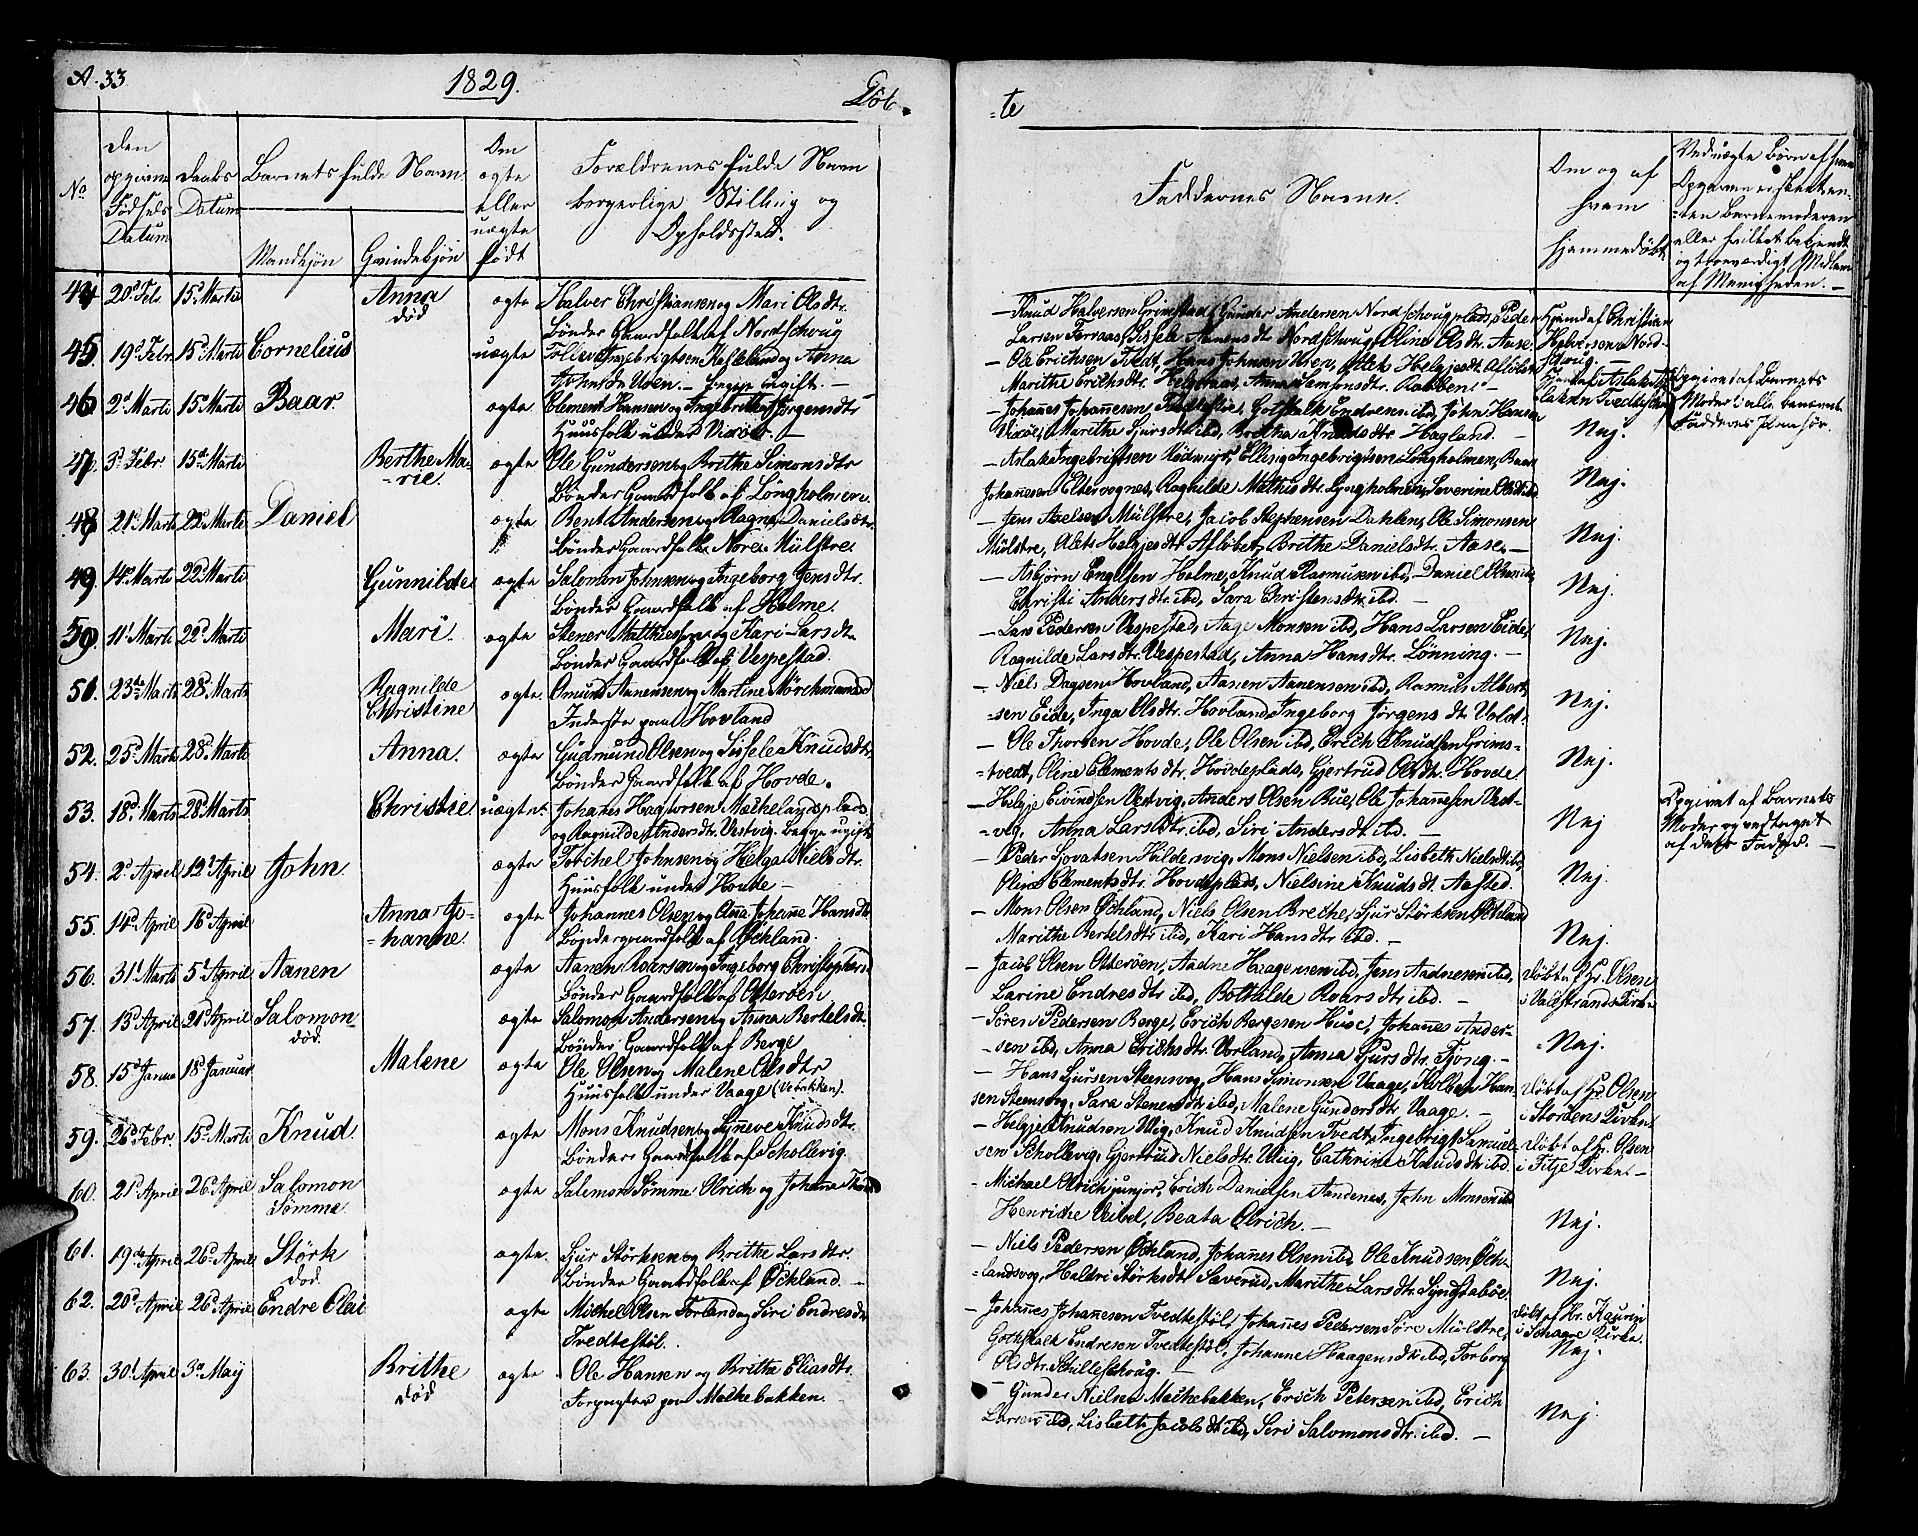 A. 33
1829.
Døb-
-te
No
Den opgivne Fødsels Datum
Daabs Datum
Barnets fulde Navn
Mandkjøn
Qvindekjøn
Om ægte eller uægte født
Forældrenes fulde Navn borgerlige Stilling og Opholdssted.
Faddernes Navne.
Om og af hvem hjemmedøbt
44 20d Febr. 15d Marti Anna død ægte Halver Christiansen og Mari Olsdtr.
Bønder Gaardfolk af Nordschoug
- Knud Halversen Grimstad, Gunder Andersen Nordschougplads, Peder
Larsen Forraas, Sissele Aamundsdt Nordschoug, Oline Olsdt. Aase.
Hjemd. af Christian Halversen Nordschoug.
45 19d Febr. 15d Marti Cornelius uægte Tollev Ingebrigtsen Hafteland og Anna
Johnsdtr Uren. - begge ugift. -
- Ole Erichsen Tvedt, Hans Johnsen Uren, Alet Helgjesdt Afløbet
Marithe Erichsdtr. Helgeraas, Anna Samsonsdtr. Kallen. -
Opgivet af Barnets Moder i alle benævnte Fadderes Paahør.
46 2d Marti 15d Marti Baar. ægte Clement Hansen og Ingebrithe Jørgensdtr
Huusfolk under Vixøe. -
- Johannes Johannesen Tvedtestøe, Gotskalk Endresen ibd, John Hansen
Vixøe, Marithe Sjursdtr. ibd, Brithe Knudsdtr. Hagland. -
Nej.
47. 3d Febr 15d Marti Berthe Ma-
-rie. ægte Ole Gundersen og Brithe Simonsdtr
Bønder Gaardfolk af Longholmen.
- Aslak Ingebrigtsen Rødungs, Elling Ingebrigtsen Longholmen, Baar
Johannesen Eltervognes, Ragnilde Mathisdtr. Lyngholmen, Severine Olsdt ibd
Nej.
48 21d Marti 22d Marti Daniel ægte Bent Andersen og Ragna Danielsdtr.
Bønder Gaardfolk Nore-Mülstre.
- Jens Axelsen Mülstre, Jacob Stephensen Dahlen, Ole Simonsen
Mülstre, Alet Helgjesdt Afløbet, Brithe Danielsdt. Aase. -
Nej.
49 14d Marti 22d Marti Gunnilde ægte Salomon Johnsen og Ingeborg Jensdtr.
Bønder Gaardfolk af Holme.
- Asbjørn Engelsen Holme, Knud Rasmusen ibd, Daniel Olsen ibd,
Christi Andersdtr. ibd, Sara Christensdtr. ibd. -
Nej.
50. 11d Marti 22d Marti Mari. ægte Stener Matthiesen og Kari Larsdtr
Bønder Gaardfolk af Vespestad.
- Lars Pedersen Vespestad, Aage Monsen ibd, Hans Larsen Eide,
Ragnilde Larsdtr. Vespestad, Anna Hansdtr. Lønning. -
Nej.
51. 23de Marts 28d Marts Ragnilde
Christine ægte. Omund Aanensen og Martine Mørchmand
Inderste paa Hovland
- Niels Dagsen Hovland, Aanen Aanensen ibd, Rasmus Albert-
-sen Eide, Inga Olsdtr. Hovland, Ingeborg Jørgensdtr. Vold.
Nej.
52. 25d Marts 28d Marts Anna. ægte Gudmund Olsen og Sissele Knudsdtr
Bønder Gaardfolk af Hovde.
- Ole Thorsen Hovde, Ole Olsen ibd, Erich Knudsen Grims-
-tvedt, Oline Clementsdtr. Hovdeplads, Gjertrud Olsdtr. Hovde
Nej.
53. 18d Marts 28d Marts Christie uægte. Johanes Hagtorsen Mæhelandsplads
og Ragnilde Andersdtr. Vestvig. begge ugift
- Helgje Eivindsen Vestvig, Anders Olsen Bue, Ole Johannesen Vest-
-vig, Anna Larsdtr. ibd, Siri Andersdt ibd. -
Nej
Opgivet af Barnets Moder og vedtaget af dets Fader. -
54. 2d April 12d April John ægte Torchel Johnsen og Helga Nielsdtr.
Huusfolk under Hovde -
- Peder Sjovatsen Hildersvig, Mons Nielsen ibd, Lisbeth Nielsdt ibd,
Oline Clementsdtr. Hovdeplads, Nielsine Knudsdt. Aasted.
Nej.
55. 14d April 16d April Anna Jo-
-hanne. ægte Johannes Olsen og Anna Johanne Hansdtr
Bøndergaardfolk af Øchland.
- Mons Olsen Øchland, Niels Olsen Brethe, Sjur Størksen Øchland
Marithe Bertelsdtr ibd, Kari Hansdtr. ibd. -
Nej.
56. 31d Marti 5d April Aanen ægte Aanen Roarsen og Ingeborg Christophersd
Bønder Gaardfolk af Otterøen
- Jacob Olsen Otterøen, Aadne Haagensen ibd, Jens Aadnesen ibd,
Larine Endresdtr ibd, Bothilde Roarsdtr. ibd. -
døbt af Hr. Olsen i Valestrands Kirke
57. 13d April 21d April Salomon
død. ægte Salomon Andersen og Anna Bertelsdt.
Bønder Gaardfolk af Berge
- Søren Pedersen Berge, Erich Børgesen Huse, Johannes Ander-
-sen ibd, Anna Erichsdtr. Vorland, Anna Sjursdtr. Fjong. -
- Nej.
58. 15d Janua 18d Januar Malene ægte Ole Olsen og Malene Olsdtr
Huusfolk under Vaage (Vebakken).
- Hans Sjursen Steensvog, Hans Simonsen Vaage, Kolben Han-
sen Steensvog, Sara Stenersdtr. ibd, Malene Gundersdtr. Vaage. -
døbt af Hr. Olsen i Stordens Kirke
59. 26d Febr. 15d Marti Knud ægte Mons Knudsen og Synneve Knudsdtr.
Bønder Gaardfolk af Schollevig.
- Helgje Knudsen Vüg, Knud Knudsen Tvedt, Ingebrigt Samuel-
sen Schollevig, Gjertrud Nielsdtr. Vüg, Cathrine Knudsdtr ibd.
døbt af Hr. Olsen i Fitje Kirke. -
60. 21d April 26d April Salomon
Sømme. ægte Salemon Sømme Ulrich og Johanne
- Michael Ulrich junior, Erich Danielsen Sandenes, John Monsen ibd
Henriche Veibel, Beata Ulrich. -
Nej.
61. 19de April 26d April Størk
død. ægte. Sjur Størksen og Brithe Larsdtr.
Bønder Gaardfolk af Øchland. -
- Niels Pedersen Øchland, Johannes Olsen ibd, Ole Knudsen Øch-
-landsvog, Haldri Størksdt Saverud, Marithe Larsdtr. Syndstabøe.
Nej.
62. 20d April 26d April Endre Olai ægte Michel Olsen Forland og Siri Endresdtr
Tvedtestøl.
- Johannes Johannesen Tvedtestøl, Johannes Pedersen Søre Mülstre,
Gothskalk Endresen Tvedtestøl, Johanne Haagensdtr ibd, Torborg
Olsdtr. Schilleschoug. -
døbt af Hr. Kaurin i Schaare Kirke.
Nej.
63. 30d April 3d Maij Brithe
død ægte. Ole Hansen og Britha Eliasdtr
Forpagter paa Mæhebakken.
- Gunder Nielsen Mæhebakken, Erich Petersen ibd, Erich
Larsen ibd, Lisbeth Jacobsdtr ibd, Seri Salomonsdtr. ibd. -
Nej.